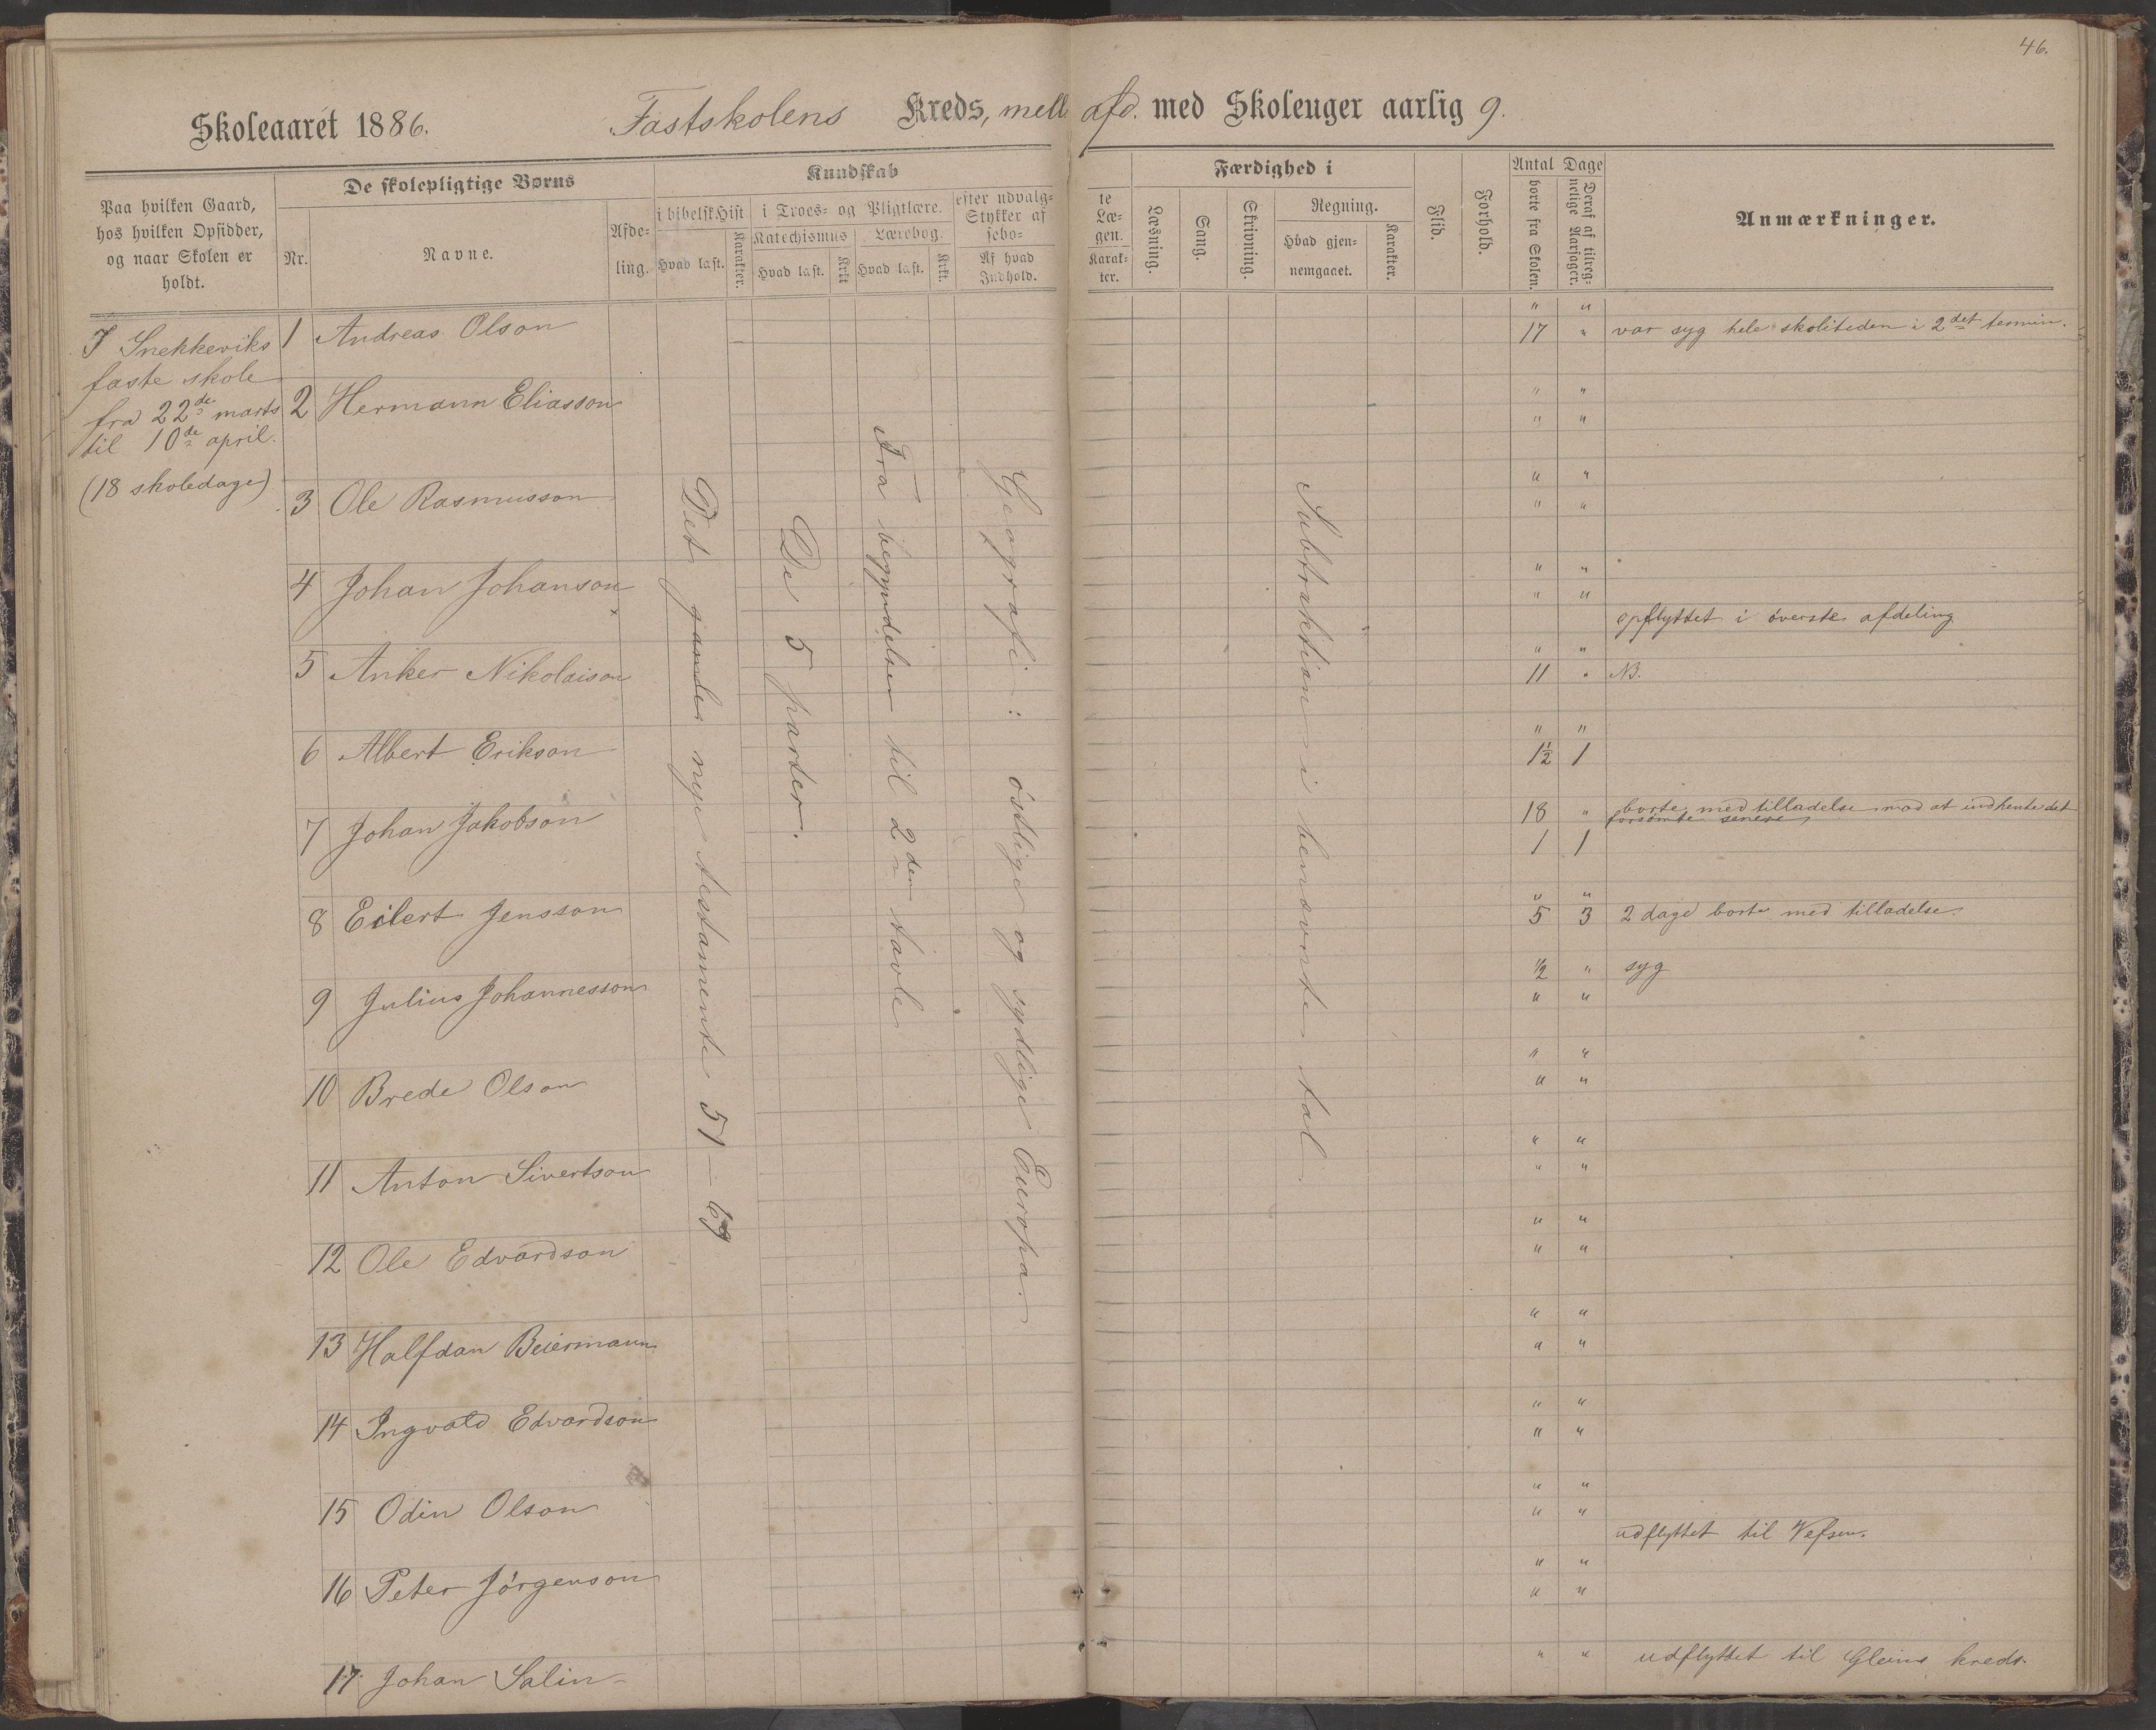 46.
Skoleaaret 1886. Fastskolens Kreds, mell afd. med Skoleuger aarlig 9.
Paa hvilken Gaard,
hos hvilken Opsidder,
og naar Skolen er
holdt.
De skolepligtige Børns
Nr.
Navne.
Afde-
ling.
Kundskab
i bibelsk Hist
Hvad læst.
Karakter.
i Troes- og Pligtlære.
Katechismus
Hvad læst.
Krkt
Lærebog.
Hvad læst.
Krkt.
efter udvalg-
Stykker af
sebo-
Af hvad
Indhold.
te
Læ-
gen.
Karak-
ter.
Færdighed i
Læsning.
Sang.
Skrivning.
Regning.
Hvad gjen-
nemgaaet.
Karakter.
Flid.
Forhold.
Antal Dage
borte fra Skolen.
Deraf af tilreg-
nelige Aarsager.
Anmærkninger.
I Snekkeviks
faste skole
fra 22de marts
til 10de april.
(18 skoledage)
Det gamle nye testamente 51 – 69
De 5 parter.
Fra begyndelsen til 2den tavle
Geografi: østlige og sydlige Europa.
Subtraktion i benævnte tal.
" "
1 Andreas Olson 17 " var syg hele skoletiden i 2det termin.
" "
2 Hermann Eliasson " "
" "
3 Ole Rasmusson " "
" "
4 Johan Johanson " "
opflyttet i øverste afdeling
" "
5 Anker Nikolaison 11 " NB.
" "
6 Albert Erikson 1½ 1
18 " borte med tilladelse mod at indhente det
forsømte senere
7 Johan Jakobson 1 1
" "
8 Eilert Jensson 5 3 2 dage borte med tilladelse.
½ " syg
9 Julius Johannesson " "
" "
10 Brede Olson " "
" "
11 Anton Sivertson " "
" "
12 Ole Edvardson " "
" "
13 Halfdan Beiermann " "
" "
14 Ingvald Edvardson " "
" "
15 Odin Olson " "
udflyttet til Vefsen.
" "
16 Peter Jörgenson " "
17 Johan Salin " " udflyttet til Gleins kreds.